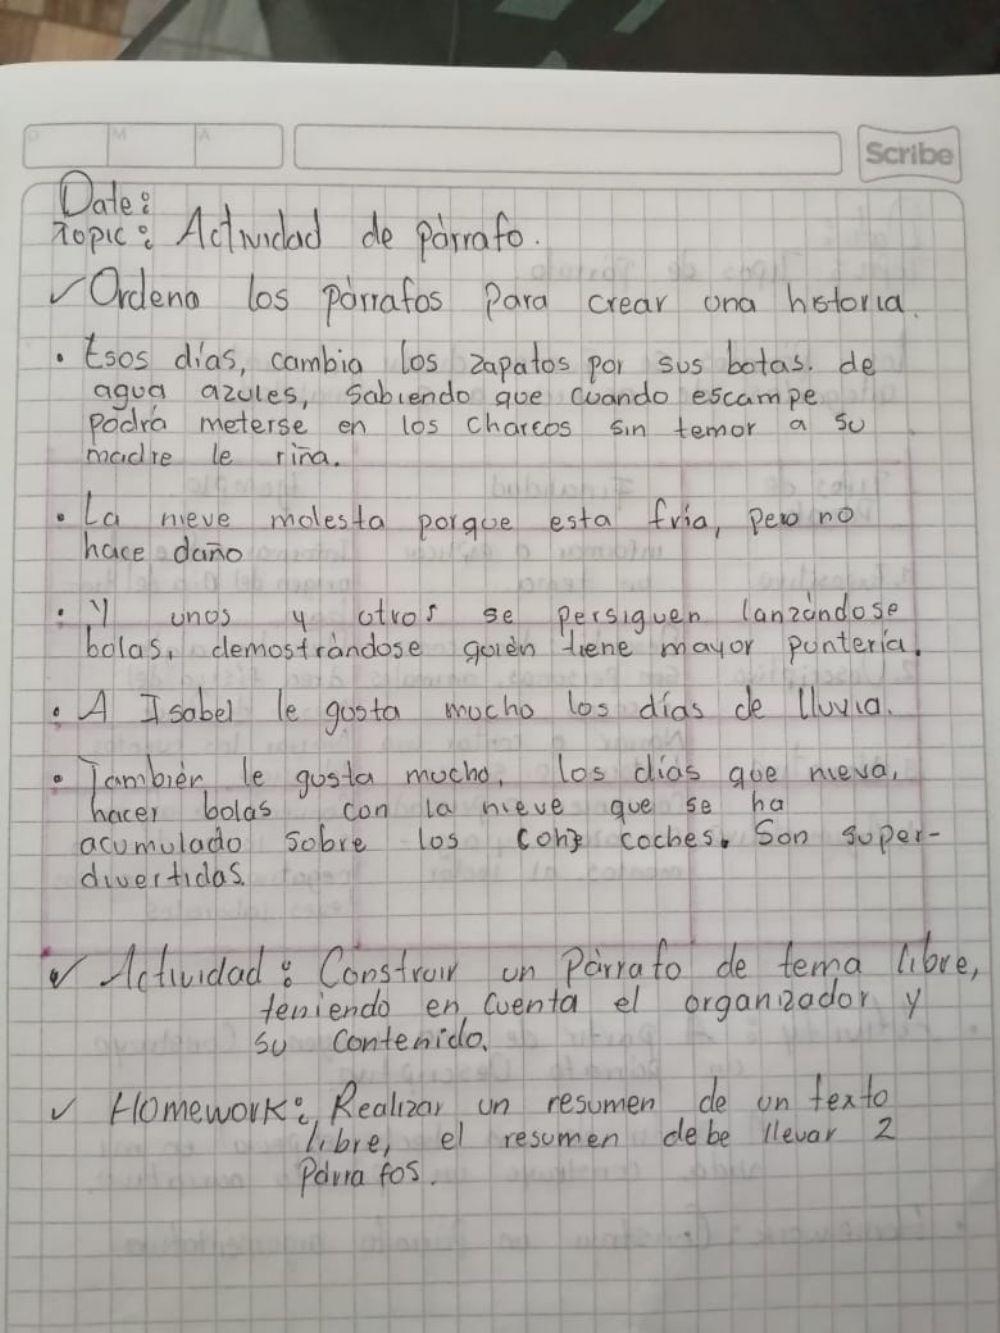 D M A
Scribe
Date:
Topic: Actividad de párrafo.
✓ Ordeno los párrafos para crear una historia.
• Esos días, cambia los zapatos por sus botas. de
agua azules, sabiendo que cuando escampe
podrá meterse en los charcos sin temor a su
madre le riña.
• La nieve molesta porque esta fría, pero no
hace daño
• Y unos y otros se persiguen lanzándose
bolas, demostrándose quién tiene mayor puntería.
• A Isabel le gusta mucho los días de lluvia.
• También le gusta mucho, los días que nieva,
hacer bolas con la nieve que se ha
acumulado sobre los coches. Son super-
divertidas.
✓ Actividad: Construir un Párrafo de tema libre,
teniendo en cuenta el organizador y
su contenido.
✓ Homework: Realizar un resumen de un texto
libre, el resumen debe llevar 2
Párrafos.